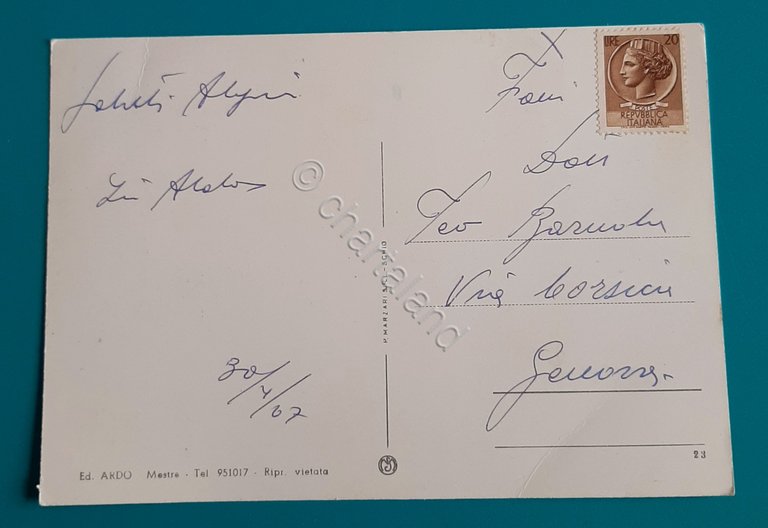 Saluti Alpini
Zio
30/7/67
Ed. ARDO Mestre - Tel 951017 - Ripr. vietata
P. MARZARI S.R.L. - SCHIO
LIRE 20
POSTE
REPVBBLICA
ITALIANA
Dott
Teo
Via Corsica
Genova
23
© chartaland